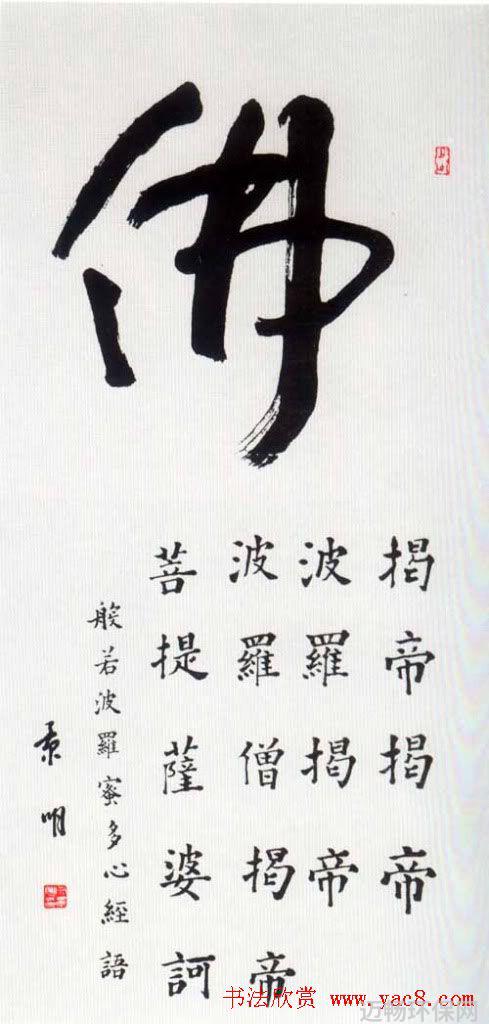 佛
揭帝揭帝
波羅揭帝
波羅僧揭帝
菩提薩婆訶
般若波羅蜜多心經語
景明
书法欣赏 www.yac8.com
迈畅环保网